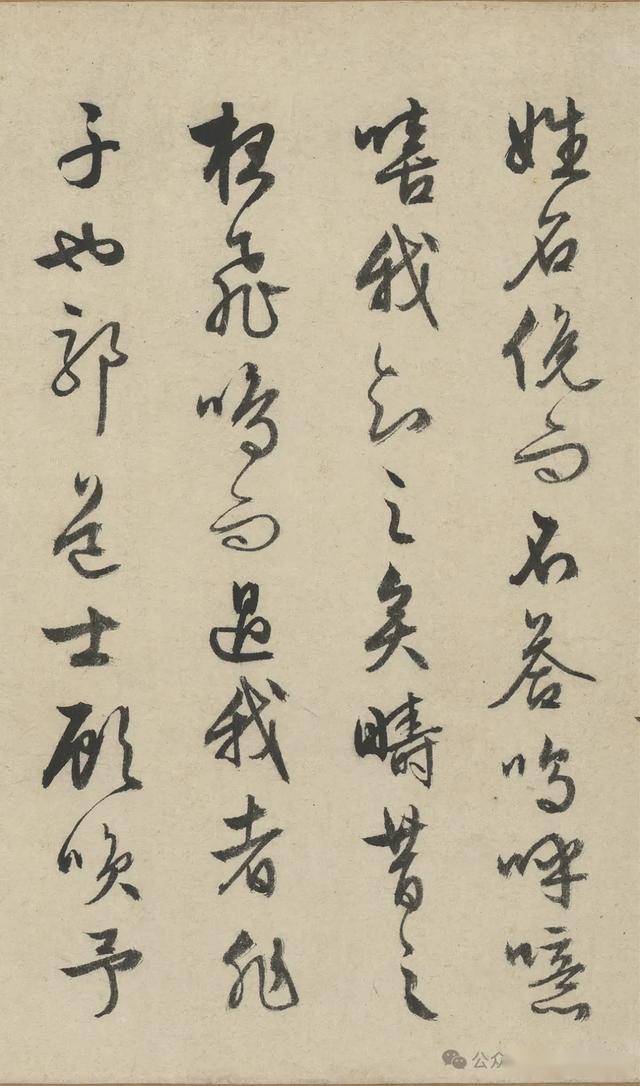 姓名俛而不答嗚呼噫
嘻我知之矣疇昔之
夜飛鳴而過我者非
子也耶道士顧咲予
公众